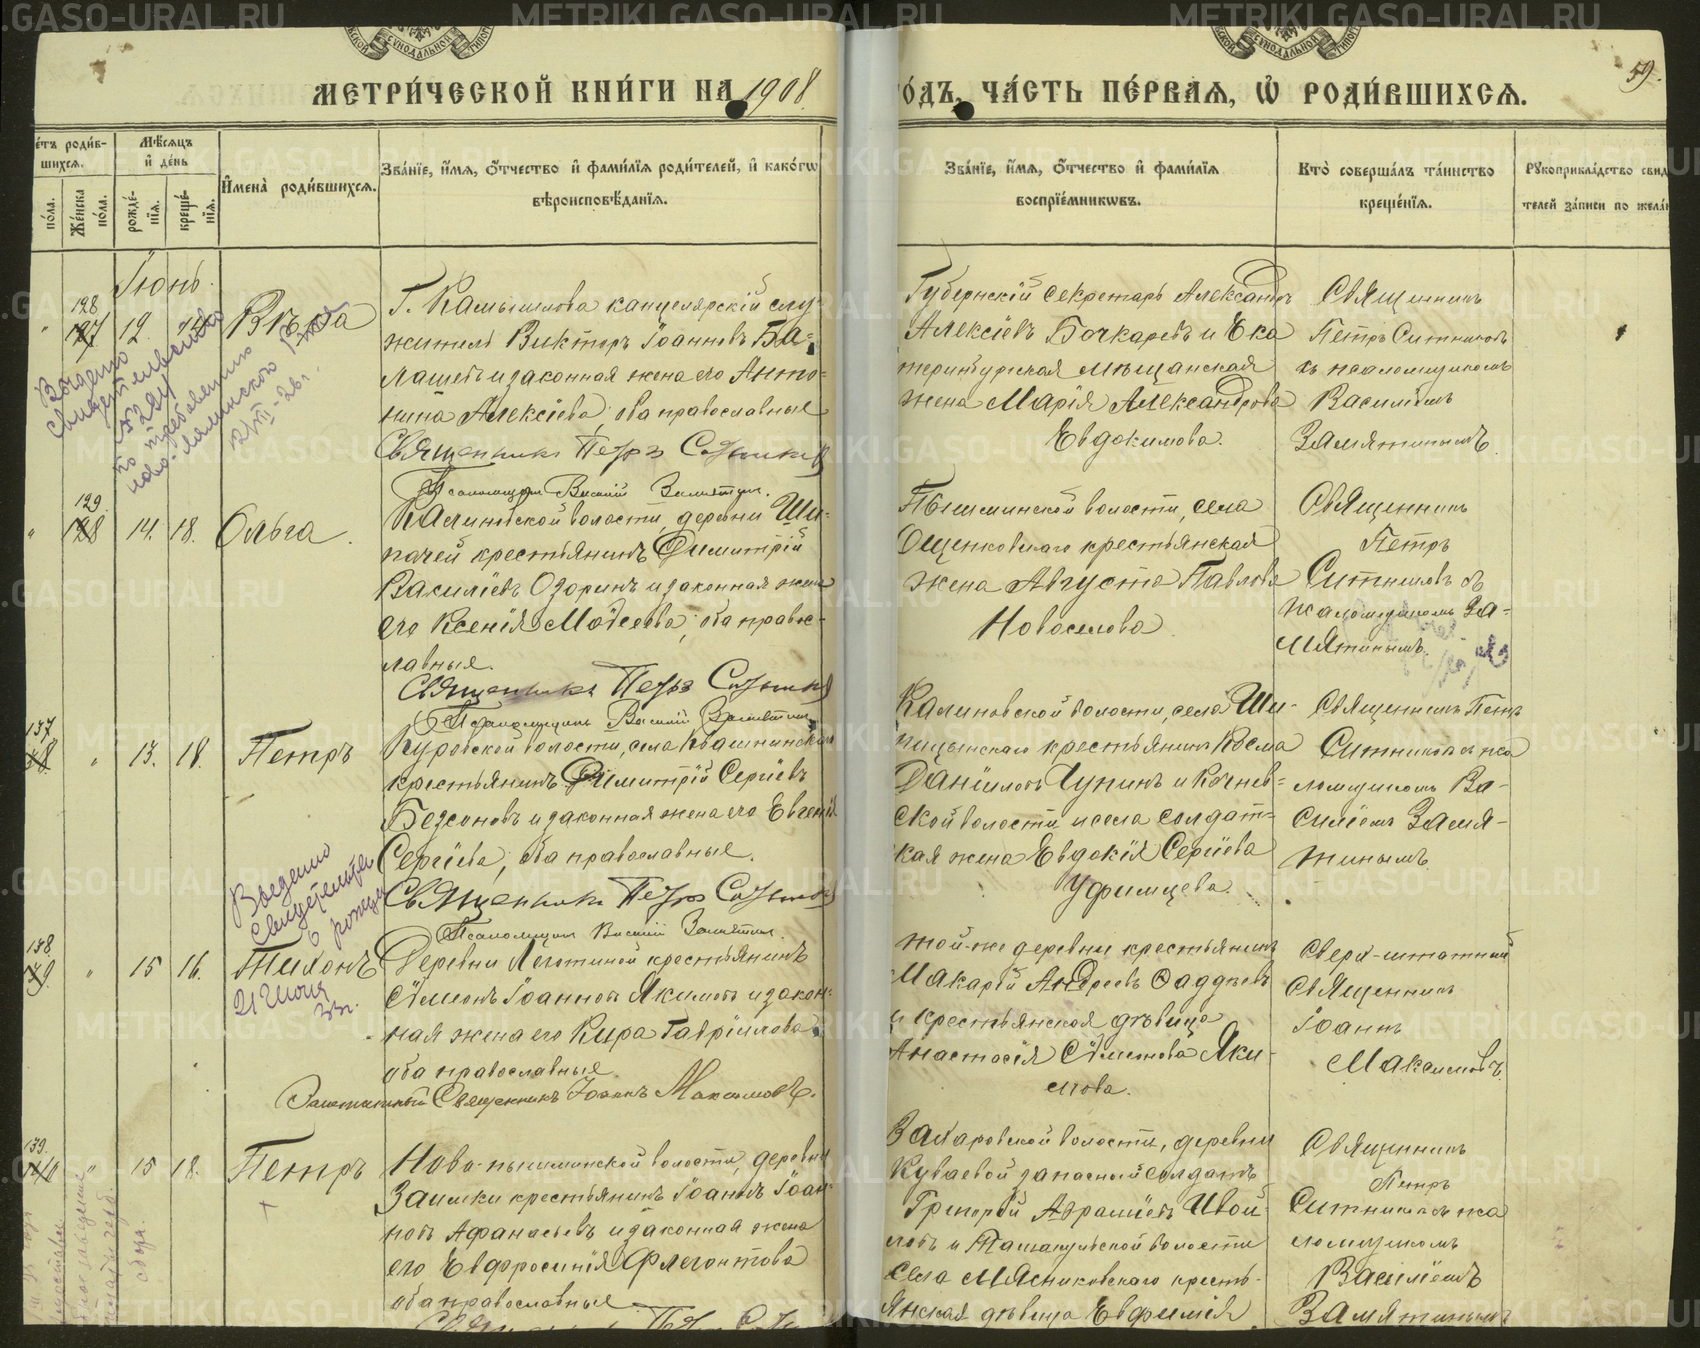 METRIKI.GASO-URAL.RU
МЕТРИ́ЧЕСКОЙ КНИ́ГИ НА 1908
ѻ́ДЪ, ЧА́СТЬ ПЕ́РВАЯ, Ѽ РОДИ́ВШИХСЯ.
59.
е́тъ роди́в-
шихся.
Мѣ́сяцъ
и҆ де́нь
по́ла.
Же́нска по́ла.
рожде́-
нїя.
креще́-
нїя.
И҆мена̀ роди́вшихся.
Зва́нїе, и҆́мя, ѻ҆́тчество и҆ фами́лїя роди́телей, и҆ како́гѡ
вѣроисповѣ́данїя.
Зва́нїе, и҆́мя, ѻ҆́тчество и҆ фами́лїя
воспрїе́мникѡвъ.
Кто̀ соверша́лъ та́инство
креще́нїя.
Рꙋкоприкла́дство свид
телей за́писи по жела́
Іюнь.
128
127
12.
14
Вѣра
Г. Камышлова канцелярскій слу-
житель Викторъ Іоанновъ Ба-
лашевъ и законная жена его Анто-
нина Алексѣева, оба православные
Священникъ Петръ Ситников
Псаломщик Василій Замятин.
Губернскій секретарь Александръ
Алексіевъ Бочкаревъ и Ека
теринбургская мѣщанская
жена Марія Александрова
Евдокимова.
Священникъ
Петръ Ситниковъ
съ псаломщикомъ
Василіемъ
Замятинымъ.
Выдано
свидетельство
№ 5284
по требованию
ново-лялинского
129
128
14. 18.
Ольга.
Калиновской волости, деревни Ши-
пачей крестьянинъ Димитрій
Василіевъ Озоринъ и законная жена
его Ксенія Моѵсеева, оба право-
славные.
Священникъ Петръ Ситников
Псаломщикъ Василій Замятин
Пышминской волости, села
Ощепковскаго крестьянская
жена Августа Павлова
Новоселова
Священникъ
Петръ
Ситниковъ съ
псаломщикомъ За-
мятинымъ.
137
13. 18.
Петръ
Куровской волости, села Квашнинскаго
крестьянинъ Димитрій Сергіевъ
Безсоновъ и законная жена его Евгенія
Сергіева, оба православные.
Священникъ Петръ Ситников
Псаломщик Василій Замятин.
Калиновской волости, села Ши-
пицынскаго крестьянинъ Косма
Даніиловъ Чупинъ и Кочнев-
ской волости и села солдат-
кая жена Евдокія Сергіева
Уфимцева.
Священникъ Петръ
Ситниковъ съ пса
ломщикомъ Ва-
силіемъ Замя-
тинымъ.
Выдано
свидетельство
о рождении
21 Июня
33г.
138
139
15 16.
Тихонъ
Деревни Леготиной крестьянинъ
Сѵмеонъ Іоанновъ Якимовъ и закон-
ная жена его Кира Гавріилова
оба православные
Заштатный Священникъ Іоаннъ Максимовъ.
той-же деревни крестьянинъ
Макарій Андреевъ Ѳаддѣевъ
и крестьянская дѣвица
Анастасія Сѵмеонова Яки-
мова.
Сверх-штатный
Священникъ
Іоаннъ
Максимовъ.
139.
140
15 18.
Петръ
Ново-пышминской волости, деревни
Заимки крестьянинъ Іоаннъ Іоан-
новъ Афанасьевъ и законная жена
его Евфросинія Флегонтова
оба православные
Захаровской волости, деревни
Куваевой запасный солдатъ
Григорій Авраміевъ Ивой-
ловъ и Ташкульской волости
села Мясниковскаго кресть-
янская дѣвица Евфимія
Священникъ
Петръ
Ситниковъ съ пса
ломщикомъ
Василіемъ
Замятинымъ